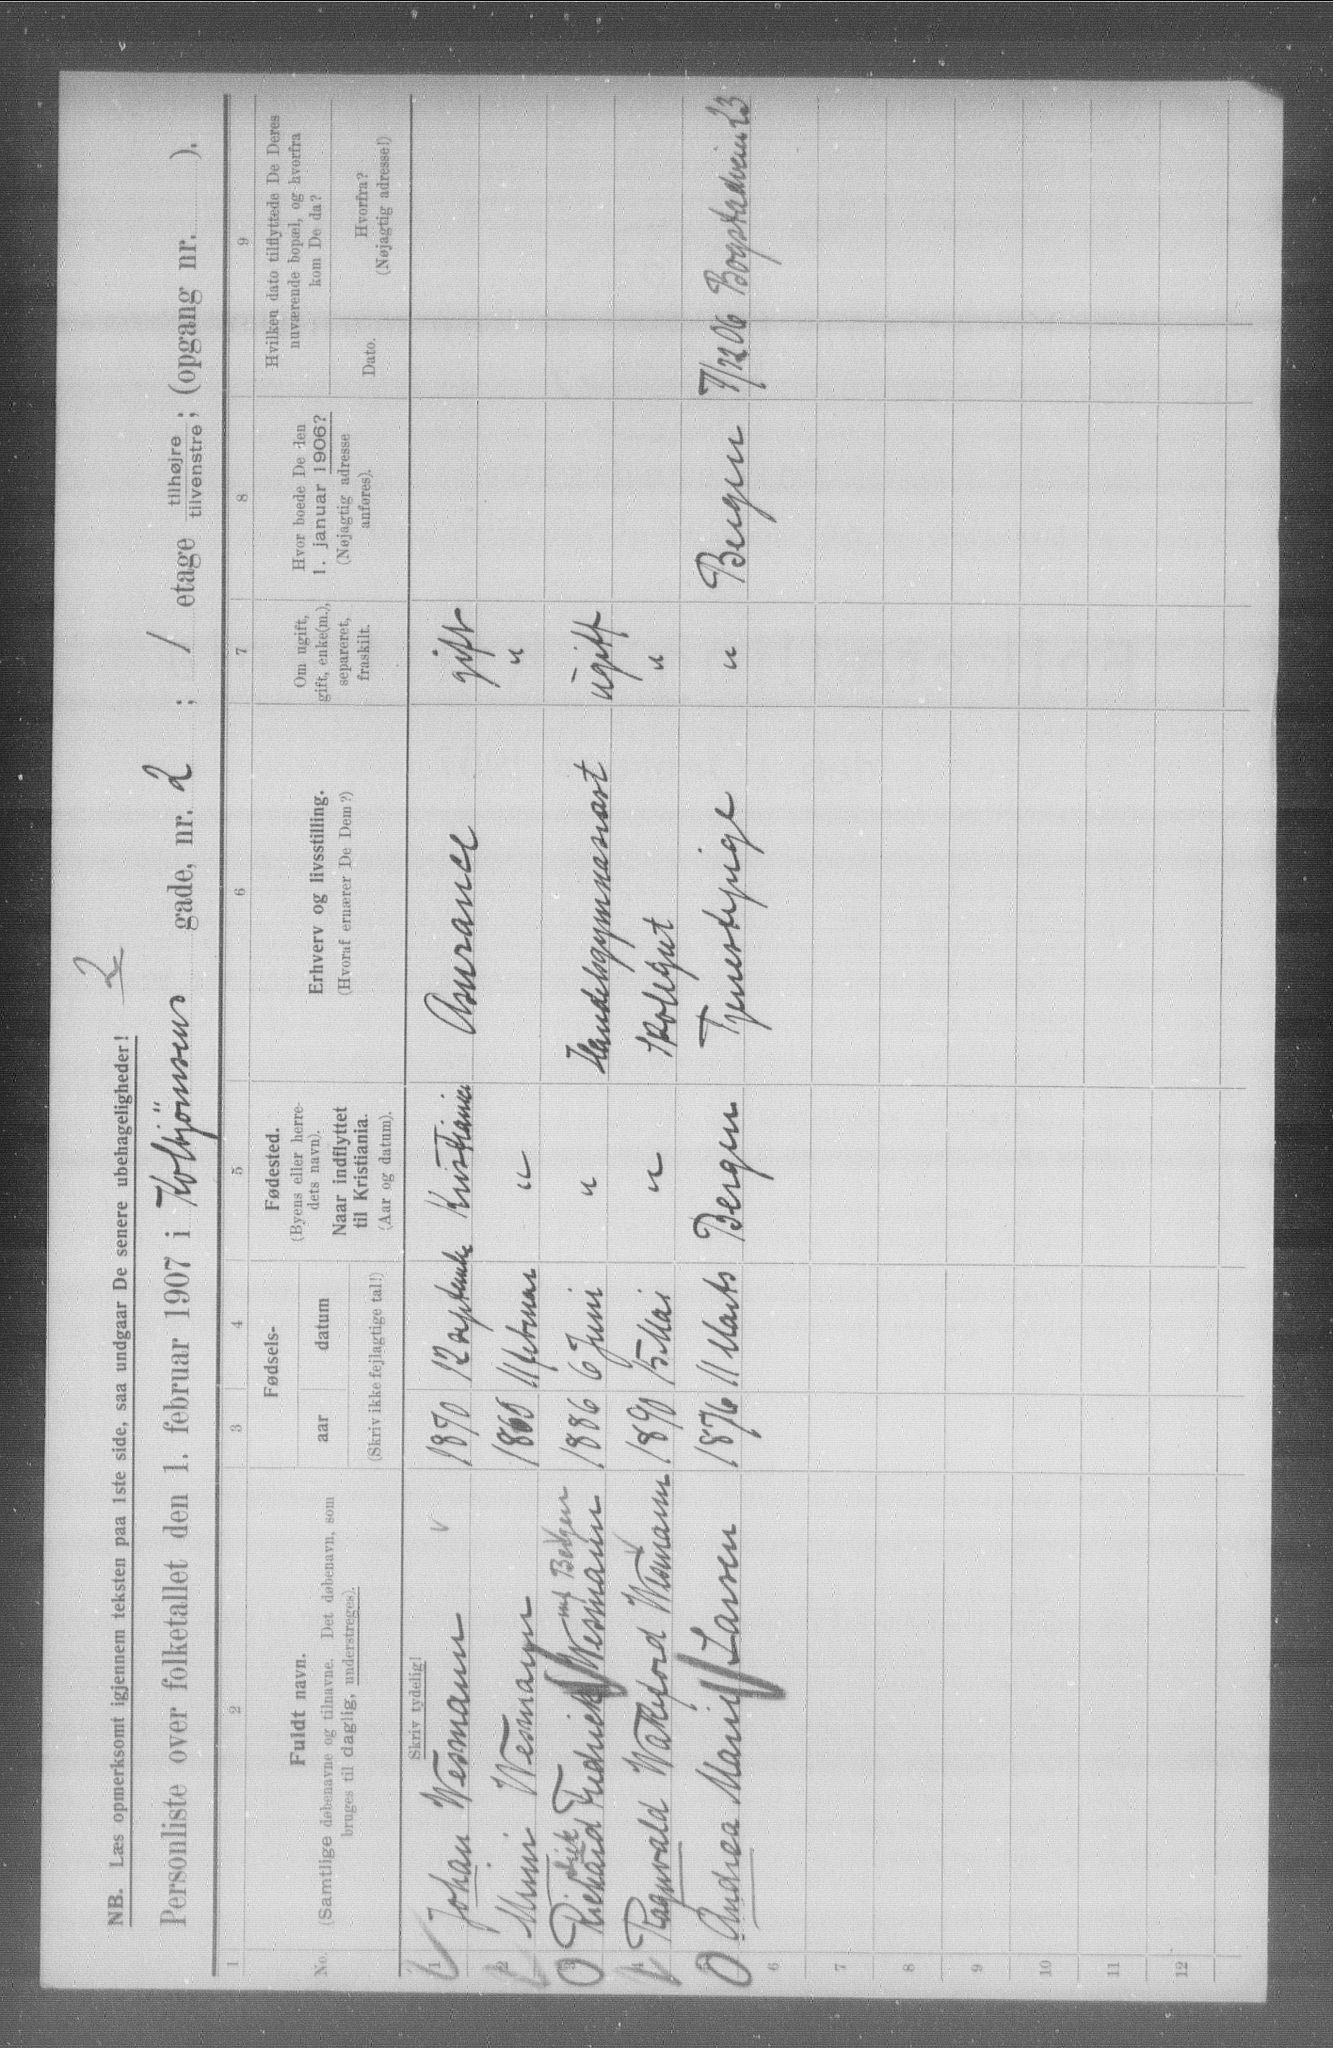 2
NB. Læs opmerksomt igjennem teksten paa 1ste side, saa undgaar De senere ubehageligheder!
Personliste over folketallet den 1. februar 1907 i Kolbjörnsens gade, nr. 2 ; 1 etage tilhøjre tilvenstre ; (opgang nr. ).
1 2 3 4 5 6 7 8 9
No. Fuldt navn. (Samtlige døbenavne og tilnavne. Det døbenavn, som bruges til daglig, understreges).
Fødsels- aar datum (Skriv ikke fejlagtige tal!)
Fødested. (Byens eller herredets navn). Naar indflyttet til Kristiania. (Aar og datum).
Erhverv og livsstilling. (Hvoraf ernærer De Dem?)
Om ugift, gift, enke(m.), separeret, fraskilt.
Hvor boede De den 1. januar 1906? (Nøjagtig adresse anføres).
Hvilken dato tilflyttede De Deres nuværende bopæl, og hvorfra kom De da?
Dato. Hvorfra? (Nøjagtig adresse!)
Skriv tydelig!
1 Johan Wesmann 12 September Kristiania gift
2 Wesmann 11 februar " "
3 Richard Fredrick Wesmann 1886 6 Juni " Handelsgymnasiast ugift
4 Ragnvald Wesmann 1890 15 Mai " Skolegut "
5 Andrea Marie Larsen 1876 11 Marts Bergen Tjenestepige " Bergen 1/12 06 Bogstadveien 23
6
7
8
9
10
11
12